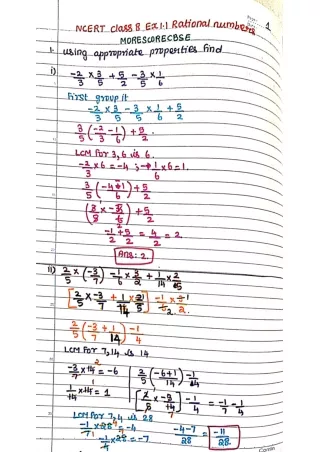 1
NCERT class 8 Ex 1.1 Rational numbers
MORESCORECBSE
1. using appropriate properties find
i) -2/3 × 3/5 + 5/2 - 3/5 × 1/6
First group it
-2/3 × 3/5 - 3/5 × 1/6 + 5/2
3/5 (-2/3 - 1/6) + 5/2
LCM for 3, 6 is 6.
-2/3 × 6 = -4 ; → 1/6 × 6 = 1.
3/5 (-4-1/6) + 5/2
+ 5/2
-1/2 + 5/2 = 4/2 = 2.
Ans: 2.
ii) 2/5 × (-3/7) - 1/6 × 3/2 + 1/14 × 2/5
[2/5 × -3/7 + 1/14 × 2/5] - 1/6 ×
2/5 (-3/7 + 1/14) - 1/4
LCM for 7, 14 is 14
-3/7 × 14 = -6 | 2/5 (-6+1/14) - 1/4
1/14 × 14 = 1 | [2/5 × -5/14] - 1/4 = -1/7 - 1/4
LCM for 7, 4 is 28
-1/7 × 28 = -4
-1/4 × 28 = -7
-4-7/28 = -11/28.